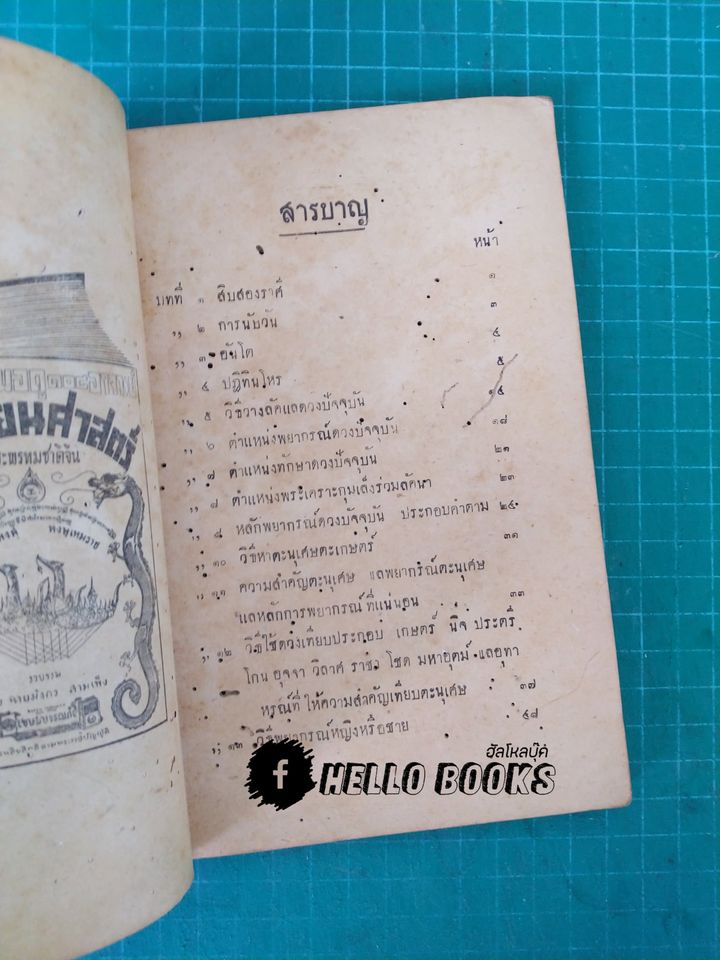 สารบาญ
หน้า
บทที่ ๑ สิบสองราศี ๑
,, ๒ การนับวัน ๓
,, ๓ อันโต ๔
,, ๔ ปฏิทินโหร ๕
,, ๕ วิธีวางลัคแลดวงปัจจุบัน ๑๕
,, ๖ ตำแหน่งพยากรณ์ดวงปัจจุบัน ๑๘
,, ๗ ตำแหน่งทักษาดวงปัจจุบัน ๒๑
,, ๗ ตำแหน่งพระเคราะกุมเล็งร่วมลัคนา ๒๓
,, ๘ หลักพยากรณ์ดวงปัจจุบัน ประกอบคำตาม ๒๔
,, ๑๐ วิธีหาตะนุเศษตะเกษตร์ ๓๑
,, ๑๑ ความสำคัญตะนุเศษ แลพยากรณ์ตะนุเศษ
แลหลักการพยากรณ์ที่แน่นอน ๓๓
,, ๑๒ วิธีใช้ดวงเทียบประกอบ เกษตร์ นิ๊จ ประตรี
โกน อุจจา วิลาศ ราชา โชด มหาอุตม์ แลอุทา
หรณ์ที่ให้ความสำคัญเทียบตะนุเศษ ๓๗
,, ๑๓ วิธีพยากรณ์หญิงหรือชาย ๔๘
ยนศาสตร์
ะพรหมชาติจีน
รวบรวม
ฮัลโหลบุ๊ค
f HELLO BOOKS